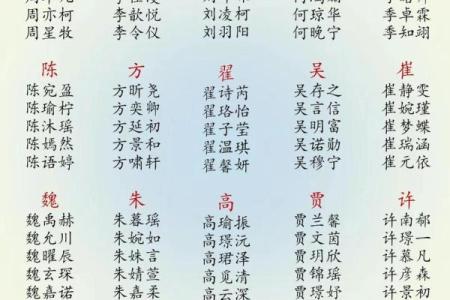 周亦柯 李歆悦 刘凌柯 何琼华 李卓霖
周星牧 李令仪 刘羽阳 何晚宁 季知翊
陈 方 翟 吴 崔
陈宛盈 方昕尧 翟诗芮 吴存之 崔静雯
陈瑜柠 方奕卿 翟珞怡 吴言信 崔婉瑾
陈沐瑶 方延初 翟子莹 吴明富 崔梦蝶
陈嫣然 方景和 翟温琪 吴诺勋 崔瑞涵
陈语婷 方啸轩 翟馨妍 吴穆宁 崔元依
魏 朱 高 贾 许
魏禹赫 朱暮瑶 高瑜振 贾兰馨 许南郁
魏允川 朱婉如 高璟沅 贾文茵 许璟一
魏曜辰 朱姝言 高珺泽 贾玥欣 许慕凡
魏玄琛 朱婧萱 高觅清 贾锦瑶 许彦森
魏嘉诺 朱嘉柔 高云深 贾璟妤 许景初